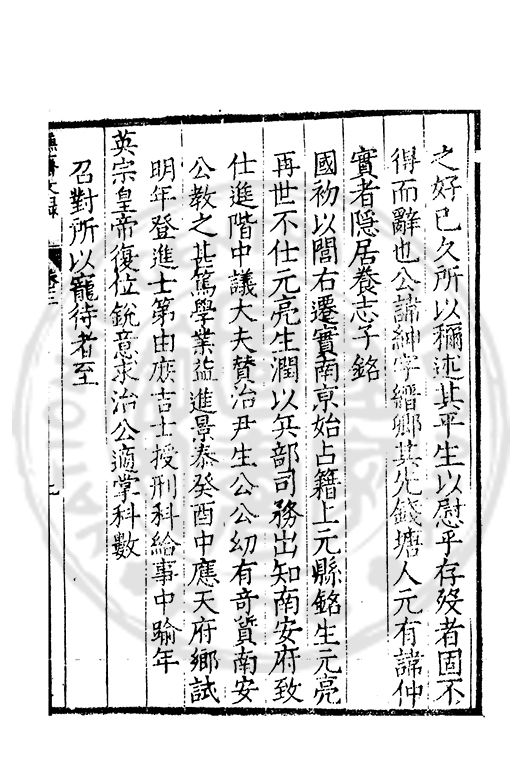 之好已久所以稱述其平生以慰乎存歿者固不
得而辭也公諱紳字縉卿其先錢塘人元有諱仲
實者隱居養志子銘
國初以閭右遷實南京始占籍上元縣銘生元亮
再世不仕元亮生潤以兵部司務出知南安府致
仕進階中議大夫贊治尹生公公幼有奇質南安
公教之甚篤學業益進景泰癸酉中應天府鄉試
明年登進士第由庶吉士授刑科給事中踰年
英宗皇帝復位銳意求治公適掌科數
召對所以寵待者至
九